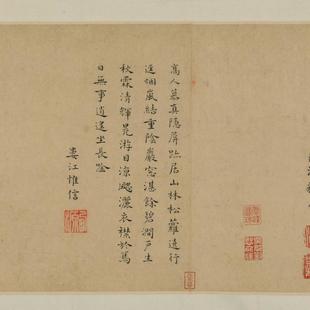 高人慕真隱屏跡居山林松蘿遶行
逕烟嵐結重陰巖窓湛餘碧澗戶生
秋霖清輝晃游目涼飈灑衣襟於焉
日無事逍遙坐長唫
婁江惟信